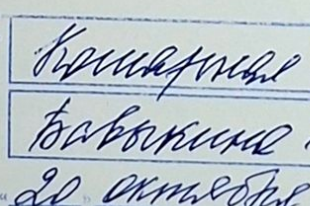 Комарная
Бавыкина
" 20 " октября